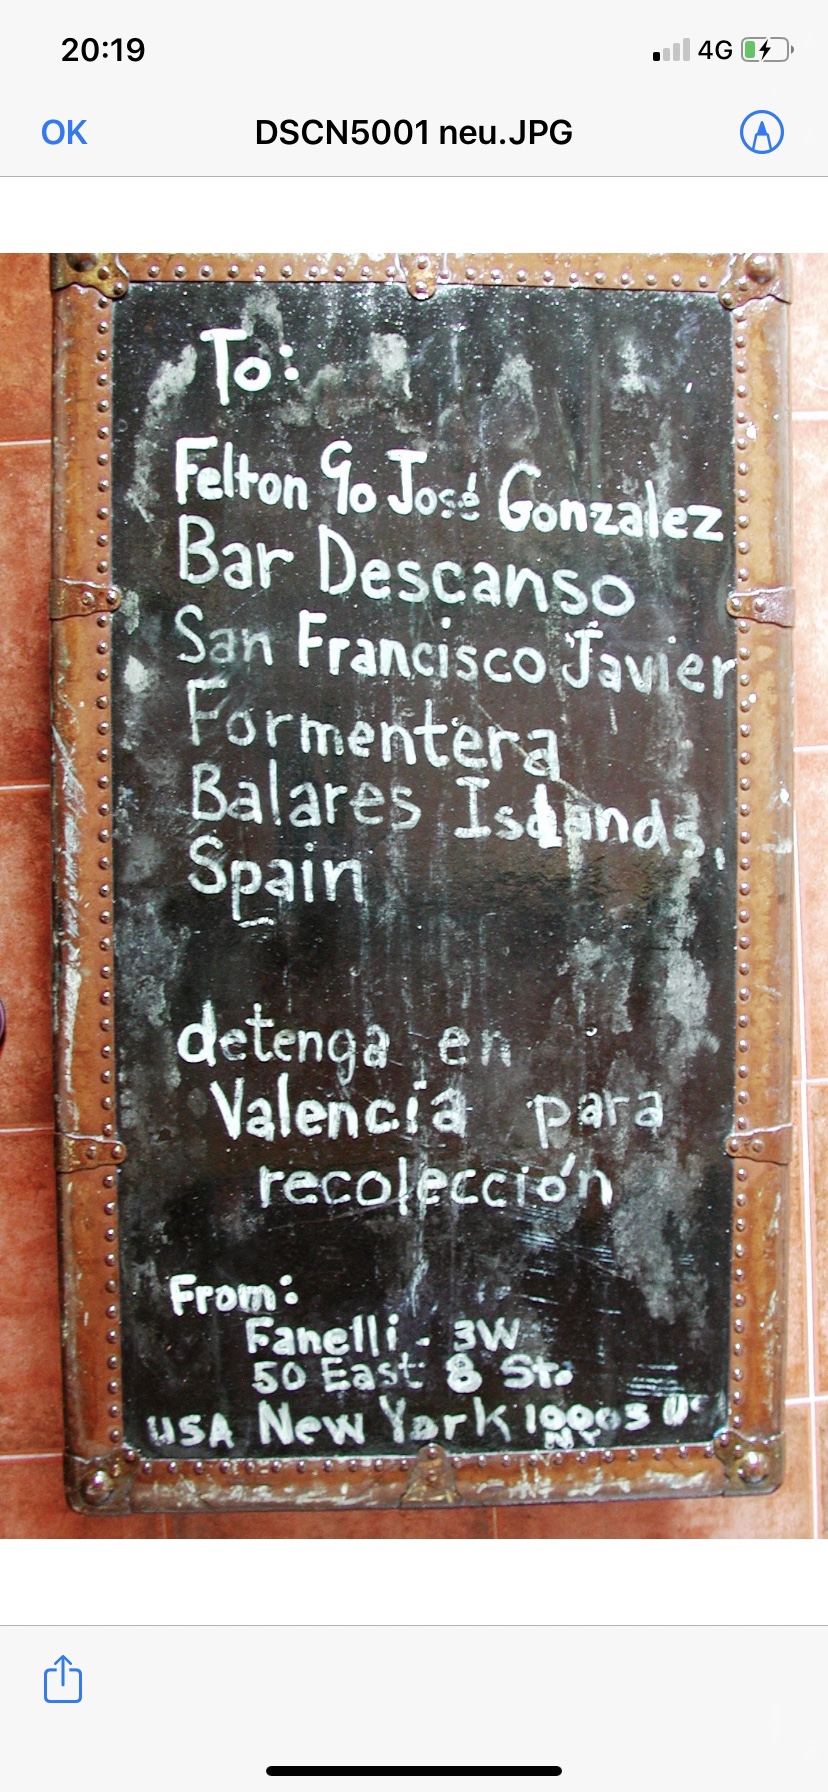 20:19
4G
OK
DSCN5001 neu.JPG
To:
Felton c/o José Gonzalez
Bar Descanso
San Francisco Javier
Formentera
Balares Islands,
Spain
detenga en
Valencia para
recolección
From:
Fanelli - 3W
50 East 8 St.
USA New York 10003
NY